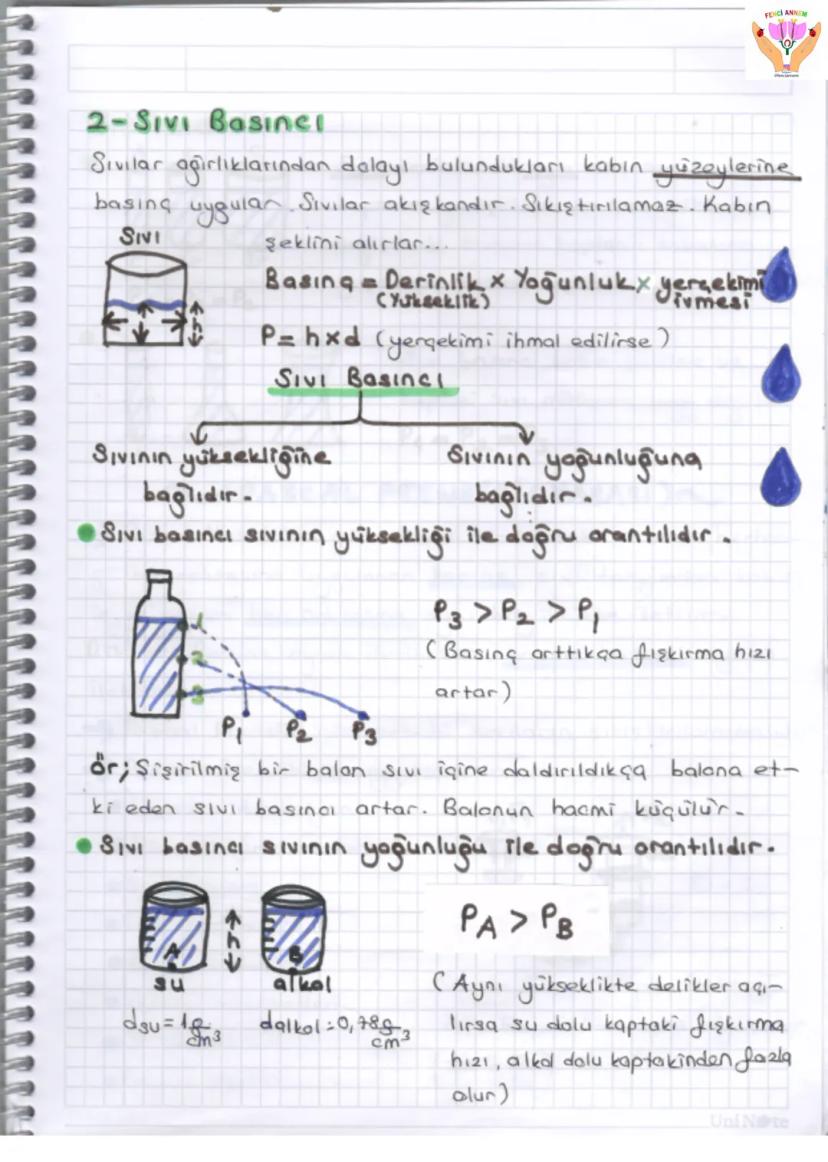 FENCİ ANNEM
2-Sıvı Basıncı
Sıvılar ağırlıklarından dolayı bulundukları kabın yüzeylerine
basınç uygular. Sıvılar akışkandır. Sıkıştırılamaz. Kabın
şeklini alırlar...
Sıvı
h
Basınç = Derinlik x Yoğunluk x yerçekimi
(Yükseklik) ivmesi
P = h x d (yerçekimi ihmal edilirse)
Sıvı Basıncı
Sıvının yüksekliğine Sıvının yoğunluğuna
bağlıdır. bağlıdır.
Sıvı basıncı sıvının yüksekliği ile doğru orantılıdır.
1
2
3
P1 P2 P3
P3 > P2 > P1
(Basınç arttıkça fışkırma hızı
artar)
Ör; Şişirilmiş bir balon sıvı içine daldırıldıkça balona et-
ki eden sıvı basıncı artar. Balonun hacmi küçülür.
Sıvı basıncı sıvının yoğunluğu ile doğru orantılıdır.
A h B
su alkol
dsu = 1 g/cm3 dalkol: 0,78 g/cm3
PA > PB
(Aynı yükseklikte delikler açı-
lırsa su dolu kaptaki fışkırma
hızı, alkol dolu kaptakinden fazla
olur)
UniNote